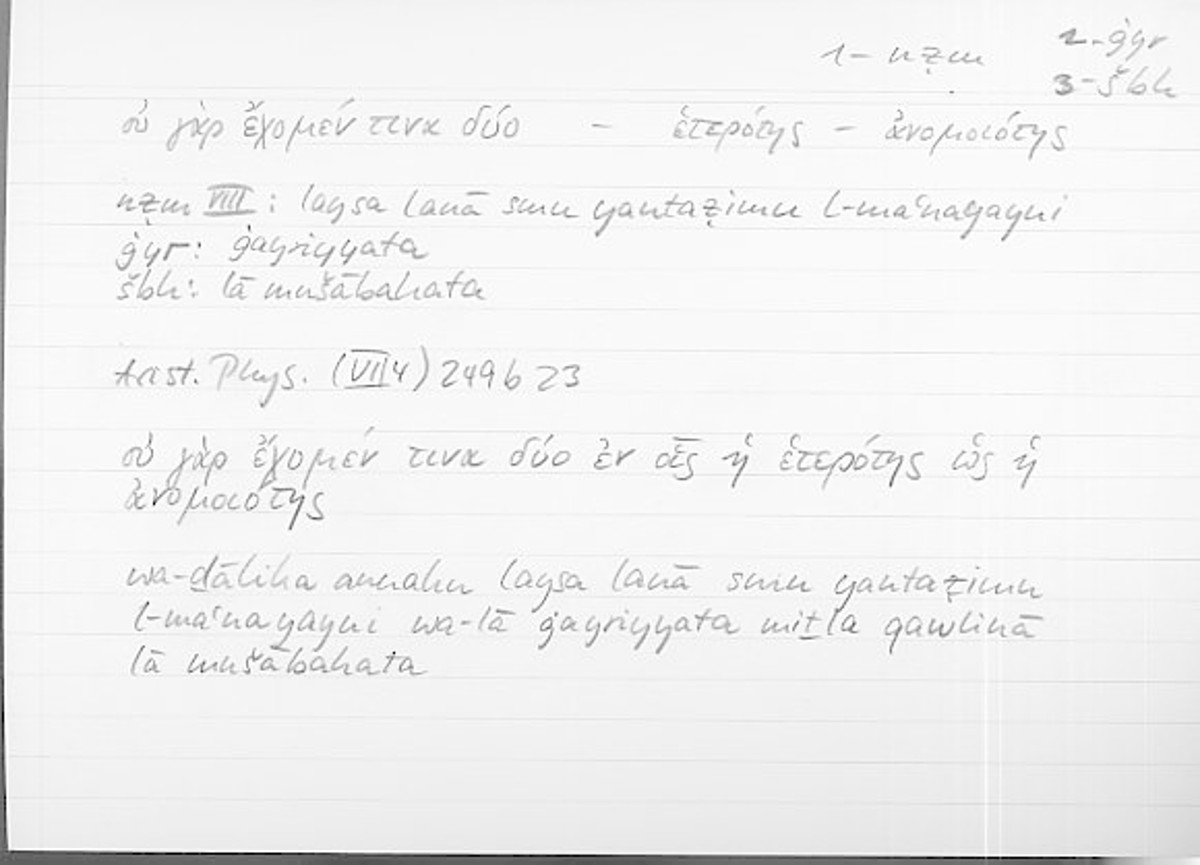 1- nẓm
2-ġyr
3-šbh
οὐ γὰρ ἔχομέν τινα δύο – ἑτερότης – ἀνομοιότης
nẓm VIII: laysa lanā smu yantaẓimu l-maʿnayayni
ġyr: ġayriyyata
šbh: lā mušābahata
Arist. Phys. (VII 4) 249 b 23
οὐ γὰρ ἔχομέν τινα δύο ἐν οἷς ἡ ἑτερότης ὡς ἡ
ἀνομοιότης
wa-ḏālika annahu laysa lanā smu yantaẓimu
l-maʿnayayni wa-lā ġayriyyata miṯla qawlinā
lā mušābahata